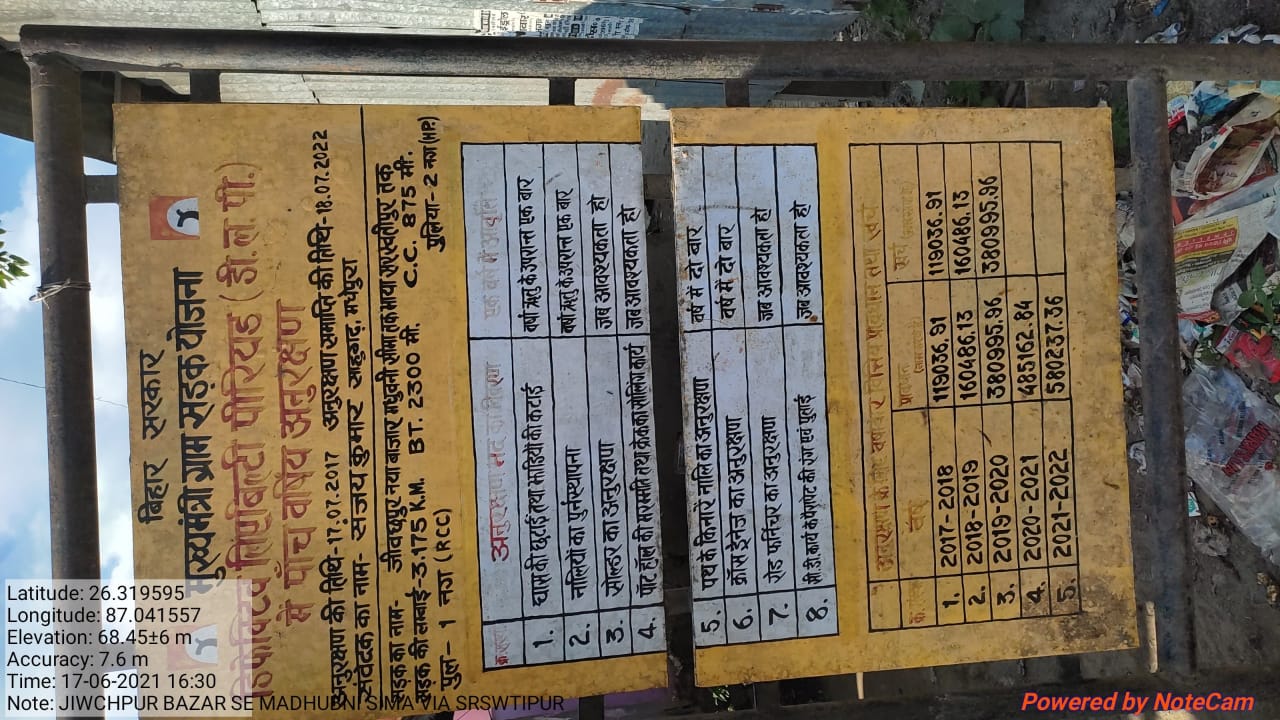 बिहार सरकार
मुख्यमंत्री ग्राम सड़क योजना
डिफेक्टिव लिएबिल्टी पीरियड (डी. ल. पी.)
से पाँच वर्षिय अनुरक्षण
अनुरक्षण की तिथि-17.07.2017 अनुरक्षण समाप्ति की तिथि-18.07.2022
संवेदक का नाम- संजय कुमार साहुगढ़, मधेपुरा
सड़क का नाम- जीवछपुर तथा बाजार मधुवनी सीमा तक भाया सरस्वतीपुर तक
सड़क की लंबाई-3.175 K.M. BT. 2300 मी. C.C. 875 मी.
पुल- 1 नग (RCC) पुलिया-2 नग (HP.)
अनुरक्षण मद का विवरण एक वर्ष में आवृति
1. घास की छटाई तथा झाड़ियों की कटाई वर्षा ऋतु के उपरान्त एक बार
2. नालियों का पुर्नस्थापना वर्षा ऋतु के उपरान्त एक बार
3. सोल्डर का अनुरक्षण जब आवश्यकता हो
4. पॉट हॉल की मरम्मति तथा क्रेक का सीलिंग कार्य जब आवश्यकता हो
5. पथ के किनारे नालि का अनुरक्षण वर्ष में दो बार
6. क्रॉस ड्रेनेज का अनुरक्षण वर्ष में दो बार
7. रोड फर्निचर का अनुरक्षण जब आवश्यकता हो
8. सी.डी. कार्य के पैरापेट की रंग एवं पुताई जब आवश्यकता हो
अनुरक्षण के लिए वर्षवार वित्तिय प्रावधान तथा खर्च
वर्ष प्रावधान खर्च
1. 2017-2018 119036.91 119036.91
2. 2018-2019 160486.13 160486.13
3. 2019-2020 380995.96 380995.96
4. 2020-2021 485162.84
5. 2021-2022 580237.36
Latitude: 26.319595
Longitude: 87.041557
Elevation: 68.45±6 m
Accuracy: 7.6 m
Time: 17-06-2021 16:30
Note: JIWCHPUR BAZAR SE MADHUBNI SIMA VIA SRSWTIPUR
Powered by NoteCam